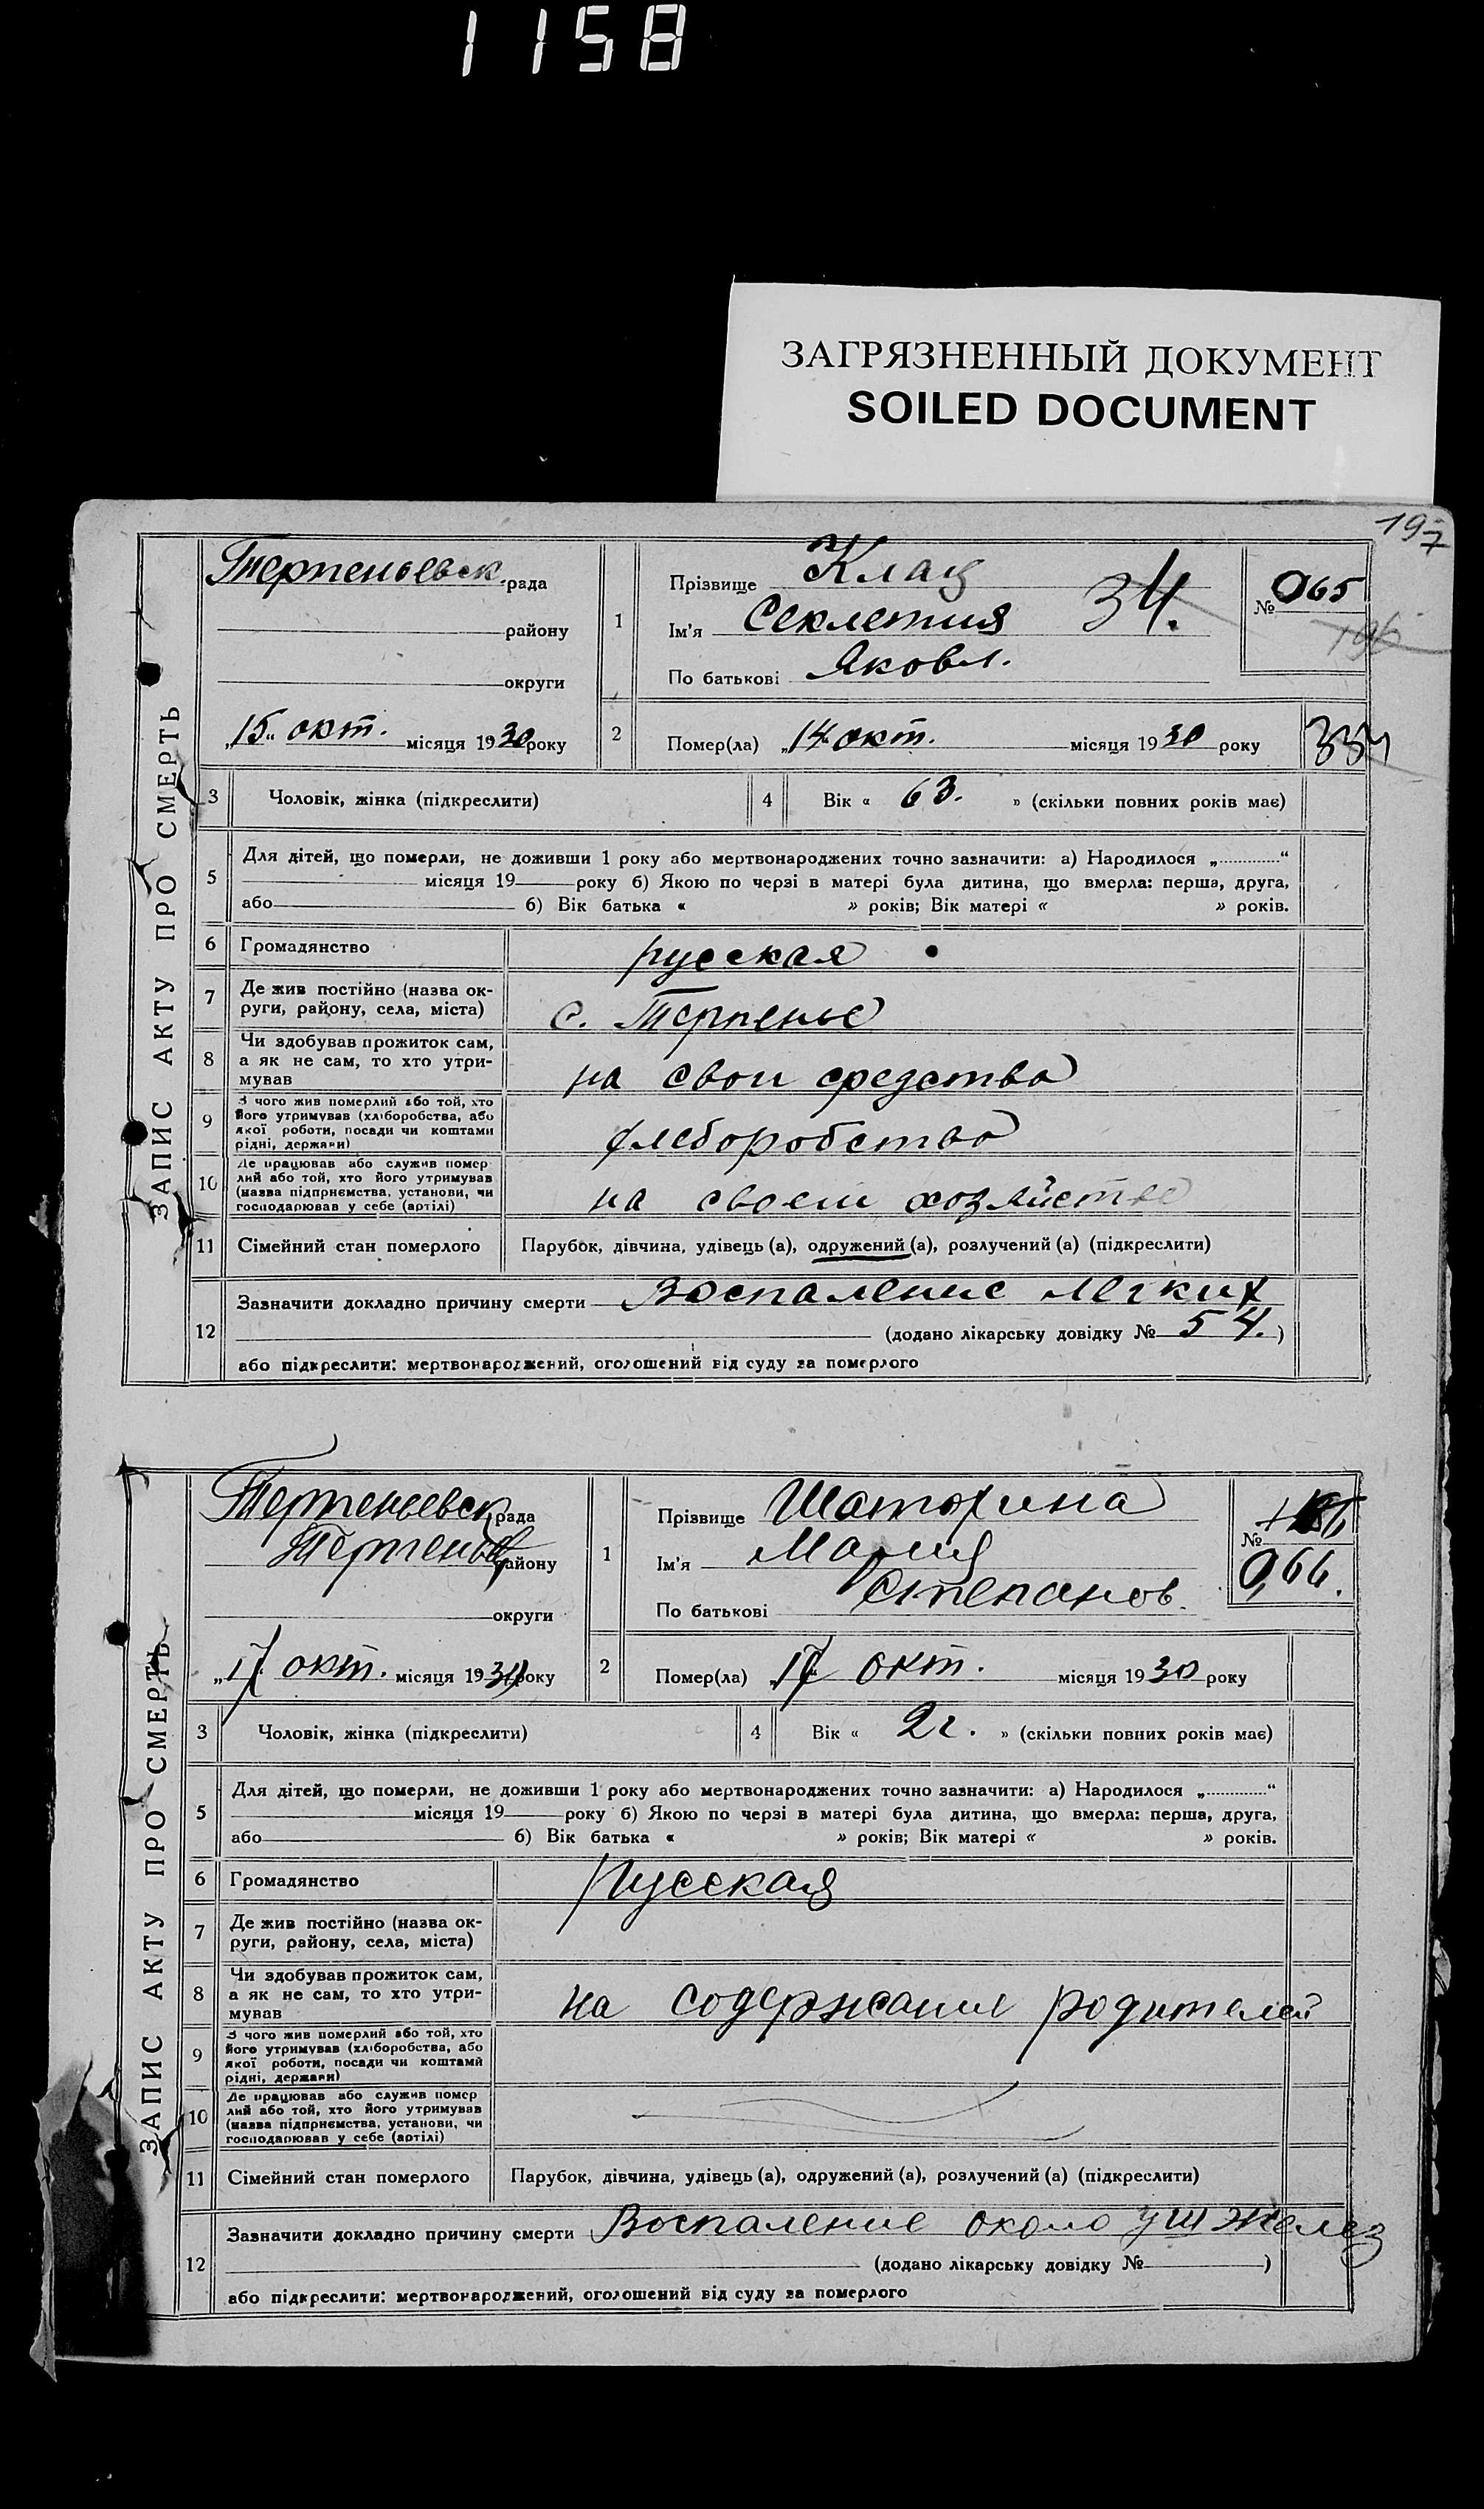 1158
ЗАГРЯЗНЕННЫЙ ДОКУМЕНТ
SOILED DOCUMENT
197
ЗАПИС АКТУ ПРО СМЕРТЬ
Терпеньевск. рада
району
округи
"15" окт. місяця 1930 року
1
Прізвище Клац
Ім'я Секлетия 34.
По батькові Яковл.
№ 065
196
2
Помер(ла) "14" окт. місяця 1930 року
334
3 Чоловік, жінка (підкреслити)
4 Вік « 63. » (скільки повних років має)
5
Для дітей, що померли, не доживши 1 року або мертвонароджених точно зазначити: а) Народилося „ “
місяця 19 року б) Якою по черзі в матері була дитина, що вмерла: перша, друга,
або б) Вік батька « » років; Вік матері « » років.
6 Громадянство русская
7 Де жив постійно (назва ок-
руги, району, села, міста) с. Терпенье
8 Чи здобував прожиток сам,
а як не сам, то хто утри-
мував на свои средства
9 З чого жив померлий або той, хто
його утримував (хліборобства, або
якої роботи, посади чи коштами
рідні, держави) хлеборобство
10 Де працював або служив помер
лий або той, хто його утримував
(назва підприємства, установи, чи
господарював у себе (артілі) на своем хозяйстве
11 Сімейний стан померлого Парубок, дівчина, удівець (а), одружений (а), розлучений (а) (підкреслити)
12
Зазначити докладно причину смерти Воспаление легких
(додано лікарську довідку № 54.)
або підкреслити: мертвонароджений, оголошений від суду за померлого
ЗАПИС АКТУ ПРО СМЕРТЬ
Терпеньевск рада
Терпенье району
округи
"17" окт. місяця 1930 року
1
Прізвище Шаторина
Ім'я Мария
По батькові Степанов.
№
066.
2
Помер(ла) "17" окт. місяця 1930 року
3 Чоловік, жінка (підкреслити)
4 Вік « 2 г. » (скільки повних років має)
5
Для дітей, що померли, не доживши 1 року або мертвонароджених точно зазначити: а) Народилося „ “
місяця 19 року б) Якою по черзі в матері була дитина, що вмерла: перша, друга,
або б) Вік батька « » років; Вік матері « » років.
6 Громадянство Русская
7 Де жив постійно (назва ок-
руги, району, села, міста)
8 Чи здобував прожиток сам,
а як не сам, то хто утри-
мував на содержании родителей
9 З чого жив померлий або той, хто
його утримував (хліборобства, або
якої роботи, посади чи коштами
рідні, держави)
10 Де працював або служив помер
лий або той, хто його утримував
(назва підприємства, установи, чи
господарював у себе (артілі)
11 Сімейний стан померлого Парубок, дівчина, удівець (а), одружений (а), розлучений (а) (підкреслити)
12
Зазначити докладно причину смерти Воспаление около уш желез
(додано лікарську довідку № )
або підкреслити: мертвонароджений, оголошений від суду за померлого